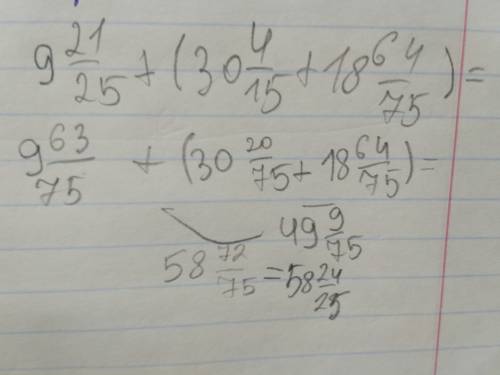 9 21/25 + (30 4/15 + 18 64/75) =
9 63/75 + (30 20/75 + 18 64/75) =
49 9/75
58 72/75 = 58 24/25